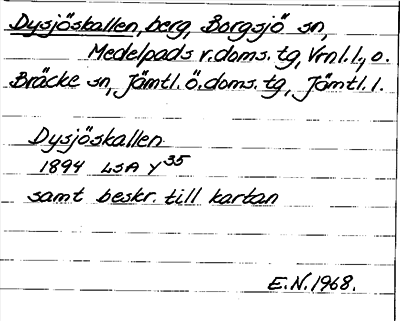 Dysjöskallen, berg, Borgsjö sn,
Medelpads v.doms. tg, Vrnl. l., o.
Bräcke sn, Jämtl. ö. doms. tg, Jämtl. l.
Dysjöskallen
1894 LSA Y35
samt beskr. till kartan
E.N. 1968.